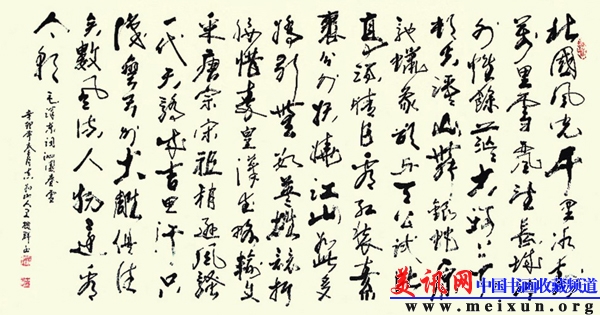 北國風光千里冰封
萬里雪飄望長城內
外惟餘莽莽大河上下
頓失滔滔山舞銀蛇原
馳蠟象欲與天公試比
高須晴日看紅裝素
裹分外妖嬈江山如此多
嬌引無數英雄競折
腰惜秦皇漢武略輸文
采唐宗宋祖稍遜風騷
一代天驕成吉思汗只
識彎弓射大雕俱往
矣數風流人物還看
今朝
毛澤東詞沁園春雪
辛卯年春月
美讯网 中国书画收藏频道
www.meixun.org